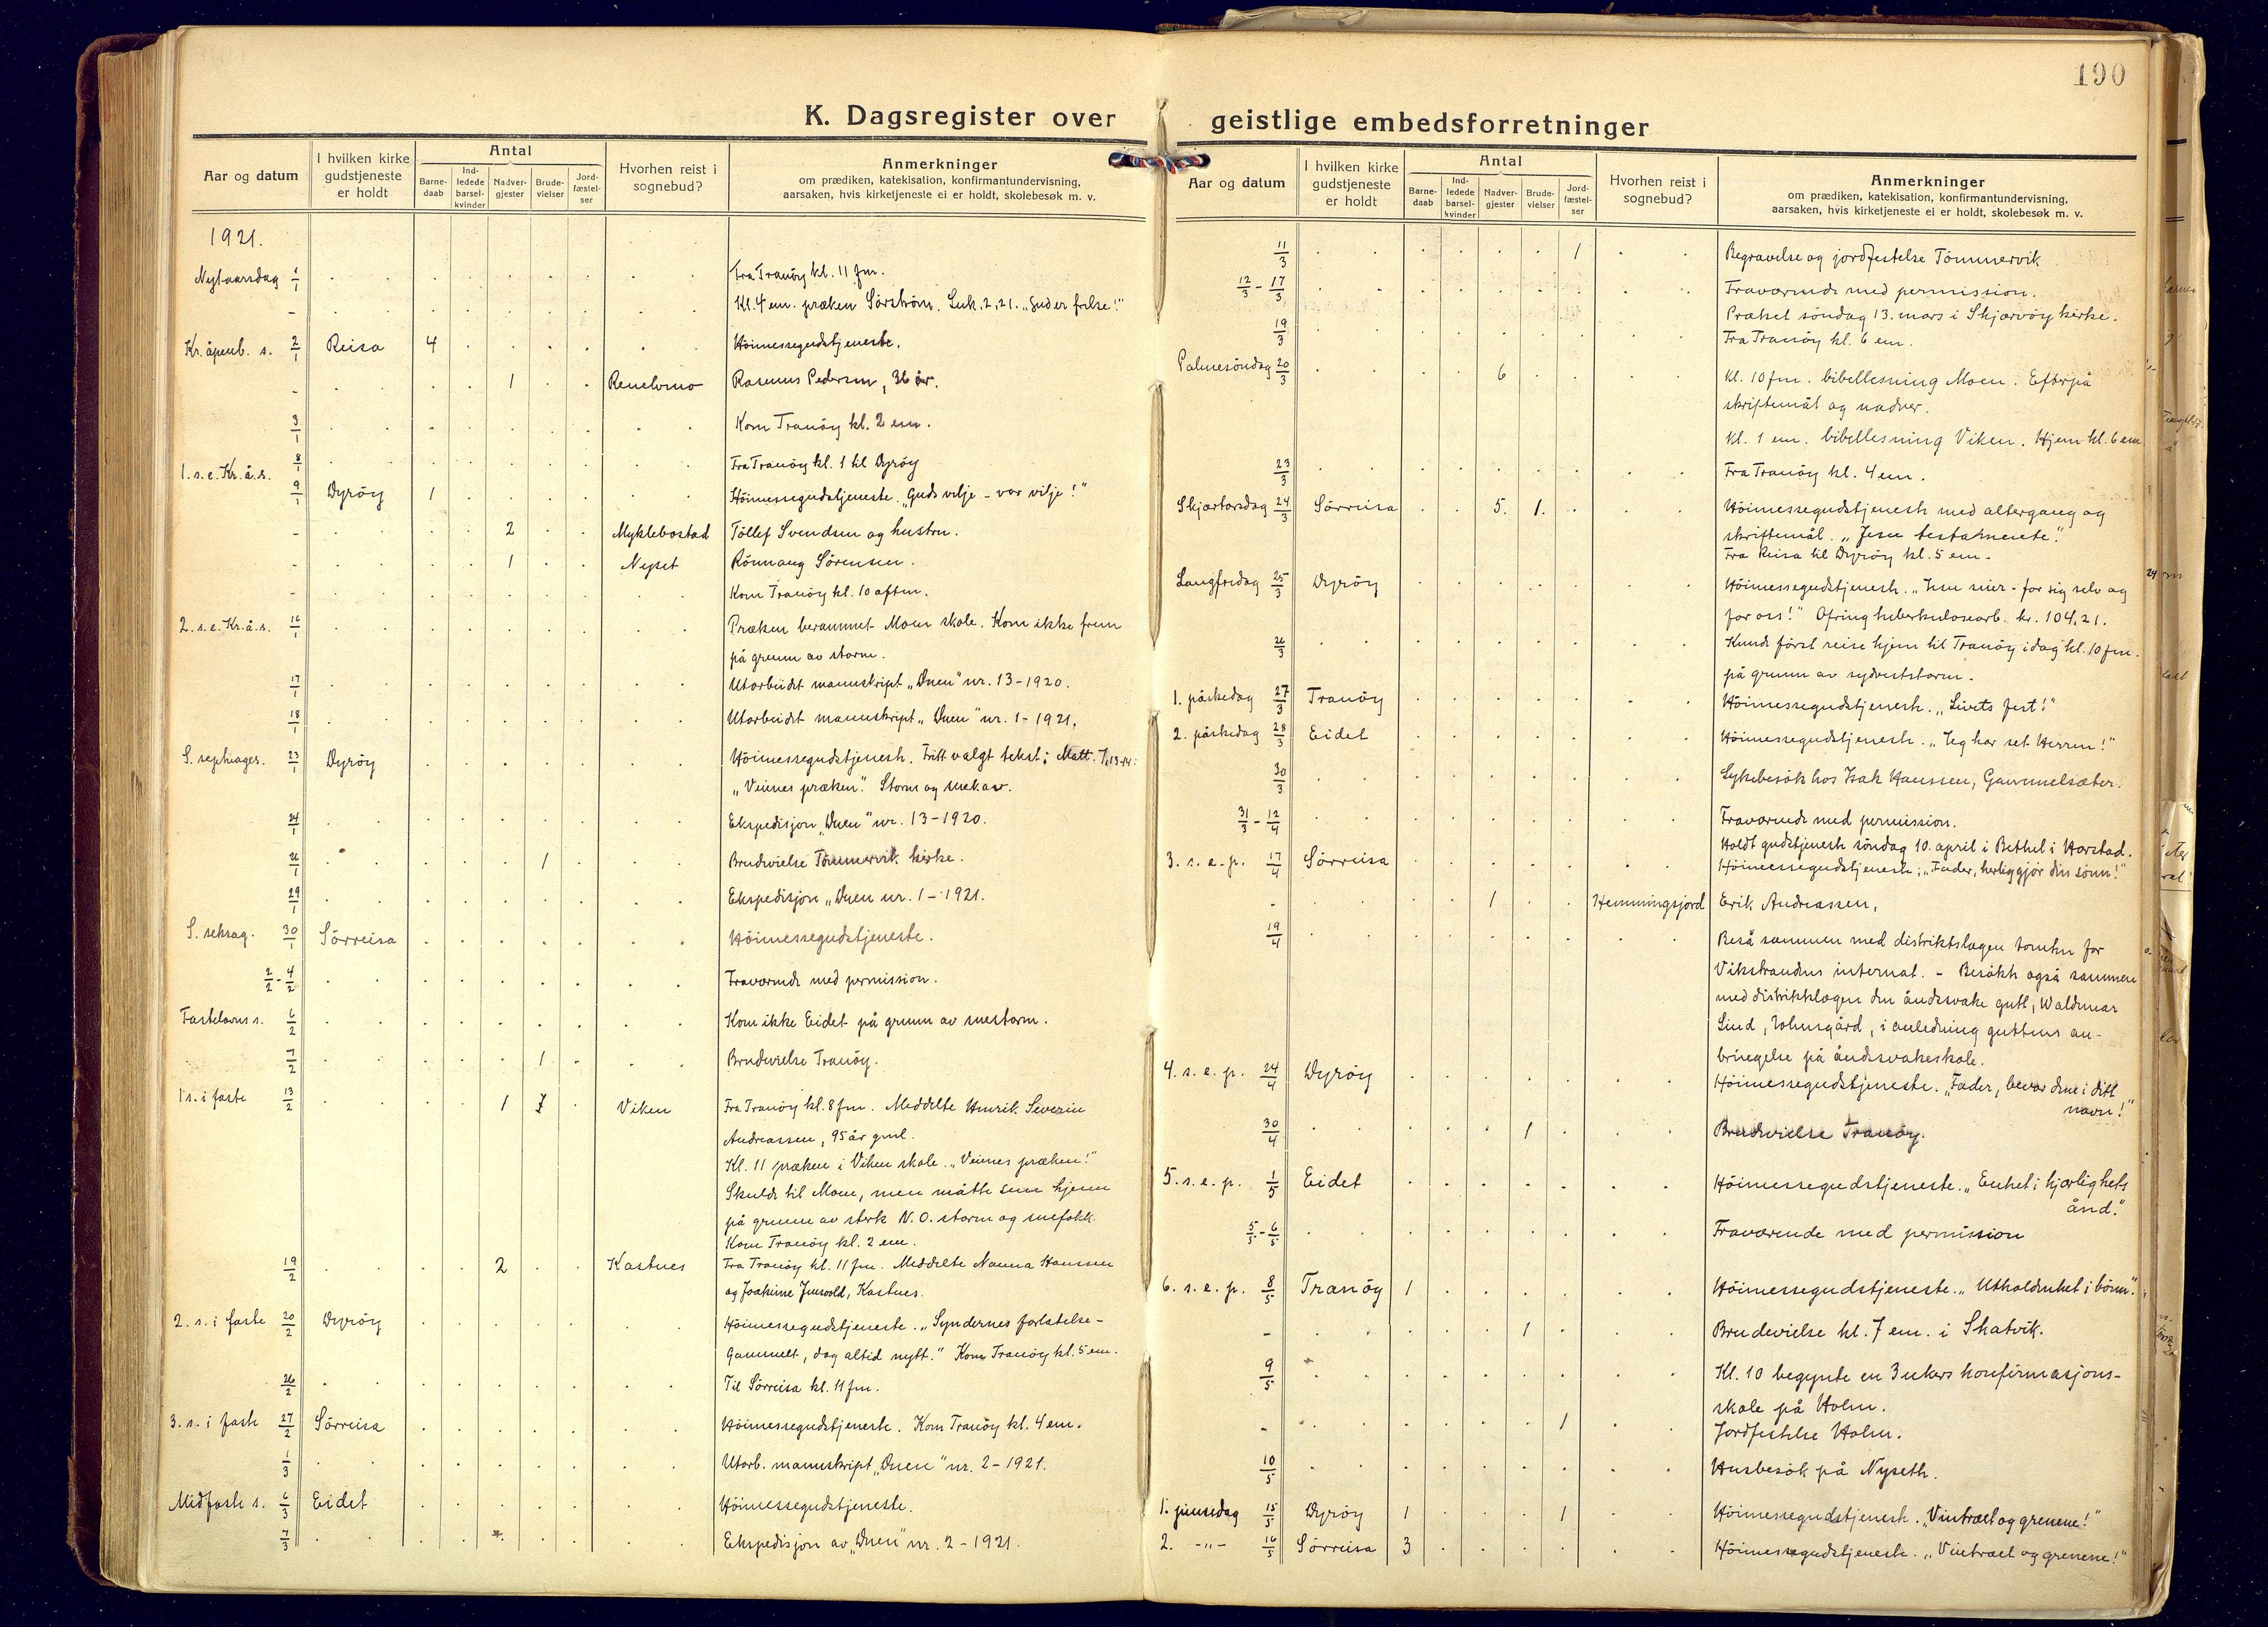 190
K. Dagsregister over geistlige embedsforretninger
Aar og datum
I hvilken kirke gudstjeneste er holdt
Antal
Barne-daab
Ind-ledede barsel-kvinder
Nadver-gjester
Brude-vielser
Jord-fæstel-ser
Hvorhen reist i sognebud?
Anmerkninger
om prædiken, katekisation, konfirmantundervisning,
aarsaken, hvis kirketjeneste ei er holdt, skolebesøk m. v.
1921.
Nytaarsdag 1/1 Fra Tranöy kl. 11 fm.
- Kl. 4 em. præken Sörström. Luk. 2,21.
Kr. åpenb. s. 2/1 Reisa 4 Höimessegudstjeneste.
- 1 Rasmus Pedersen, 36 år.
3/1 Kom Tranöy kl. 2 em.
8/1 Fra Tranöy kl. 1 til Dyröy
1. s. e. Kr. å. s. 9/1 Dyröy 1 Höimessegudstjeneste. „Guds vilje - vor vilje!"
- 2 Myklebostad Töllef Svendsen og hustru.
- 1 Nyset Rönnaug Sörensen.
- Kom Tranöy kl. 10 aften.
2. s. e. Kr. å. s. 16/1 Præken berammet Moen skole. Kom ikke frem
på grunn av storm.
17/1 Utarbeidet manuskript „Duen" nr. 13-1920.
18/1 Utarbeidet manuskript „Duen" nr. 1-1921.
S. septuages. 23/1 Dyröy Höimessegudstjenest. Fritt valgt tekst: Matt. 7,13-14:
„Veienes præken". Storm og snekav.
24/1 Ekspedisjon „Duen" nr. 13-1920.
26/1 1 Brudevielse Tömmervik kirke.
29/1 Ekspedisjon „Duen nr. 1-1921.
S. seksag. 30/1 Sörreisa Höimessegudstjeneste.
2/2-4/2 Fraværende med permission.
Fastelavns s. 6/2 Kom ikke Eidet på grunn av snestorm.
7/2 1 Brudevielse Tranöy.
1 s. i faste 13/2 1 Viken Fra Tranöy kl. 8 fm. Meddelte Henrik Severin
Andreassen, 95 år gml.
Kl. 11 præken i Viken skole. „Veienes præken!"
Skulde til Moen, men måtte snu hjem
på grunn av sterk N. O. storm og snefokk.
Kom Tranöy kl. 2 em.
19/2 2 Kastnes Fra Tranöy kl. 11 fm. Meddelte Nanna Hanssen
og Joakime Jensvold, Kastnes.
2. s. i faste 20/2 Dyröy Höimessegudstjeneste. „Syndernes forlatelse -
Gammelt, dog altid nytt." Kom Tranöy kl. 5 em.
26/2 Til Sörreisa kl. 11 fm.
3. s. i faste 27/2 Sörreisa Höimessegudstjeneste. Kom Tranöy kl. 4 em.
1/3 Utarb. manuskript „Duen" nr. 2-1921.
Midfaste s. 6/3 Eidet Höimessegudstjeneste.
7/3 Ekspedisjon av „Duen" nr. 2-1921.
Aar og datum
I hvilken kirke gudstjeneste er holdt
Antal
Barne-daab
Ind-ledede barsel-kvinder
Nadver-gjester
Brude-vielser
Jord-fæstel-ser
Hvorhen reist i sognebud?
Anmerkninger
om prædiken, katekisation, konfirmantundervisning,
aarsaken, hvis kirketjeneste ei er holdt, skolebesøk m. v.
11/3 1 Begravelse og jordfestelse Tömmervik
12/3-17/3 Fraværende med permission.
Præket söndag 13. mars i Skjærvöy kirke.
19/3 Fra Tranöy kl. 6 em.
Palmesöndag 20/3 6 Kl. 10 fm. bibellesning Moen. Efterpå
skriftemål og nadver.
Kl. 1 em. bibellesning Viken. Hjem kl. 6 em.
23/3 Fra Tranöy kl. 4 em.
Skjærtorsdag 24/3 Sörreisa 5. 1. Höimessegudstjeneste med altergang og
skriftemål. „Jesu testamente".
Fra Reisa til Dyröy kl. 5 em.
Langfredag 25/3 Dyröy Höimessegudstjeneste. „Jesu seier - for sig selv og
for oss!" Ofring tuberkulosearb. kr. 104,21.
26/3 Kunde först reise hjem til Tranöy idag kl. 10 fm.
på grunn av sydveststorm.
1. påskedag 27/3 Tranöy Höimessegudstjeneste. „Livets fest!"
2. påskedag 28/3 Eidet Höimessegudstjeneste. „Jeg har set Herren!"
30/3 Sykebesök hos Isak Hanssen, Gammelsæter.
31/3-12/4 Fraværende med permission.
Holdt gudstjeneste söndag 10. april i Bethel i Harstad.
3. s. e. p. 17/4 Sörreisa Höimessegudstjeneste; „Fader, herliggjör din sönn!"
- 1 Hemmingsjord Erik Andreassen,
19/4 Beså sammen med distriktslægen tomten for
Vikstrandens internat. - Besökte også sammen
med distriktslægen den åndsvake gutt, Waldemar
Lind, , i anledning guttens an-
bringelse på åndsvakeskole.
4. s. e. p. 24/4 Dyröy Höimessegudstjeneste. „Fader, bevar dem i ditt
navn!"
30/4 1 Brudevielse Tranöy.
5. s. e. p. 1/5 Eidet Höimessegudstjeneste. „Enhet i kjærlighets
ånd."
5/5-6/5 Fraværende med permission
6. s. e. p. 8/5 Tranöy 1 Höimessegudstjeneste. „Utholdenhet i bönn".
- 1 Brudevielse kl. 7 em. i Skatvik.
9/5 Kl. 10 begynte en 3 ukers konfirmasjons-
skole på Holm.
- 1 Jordfestelse Holm.
10/5 Husbesök på Nyseth.
1. pinsedag 15/5 Dyröy 1 1 Höimessegudstjeneste. „Vintræet og grenene!"
2. -"- 16/5 Sörreisa 3 Höimessegudstjeneste. „Vintræet og grenene!"